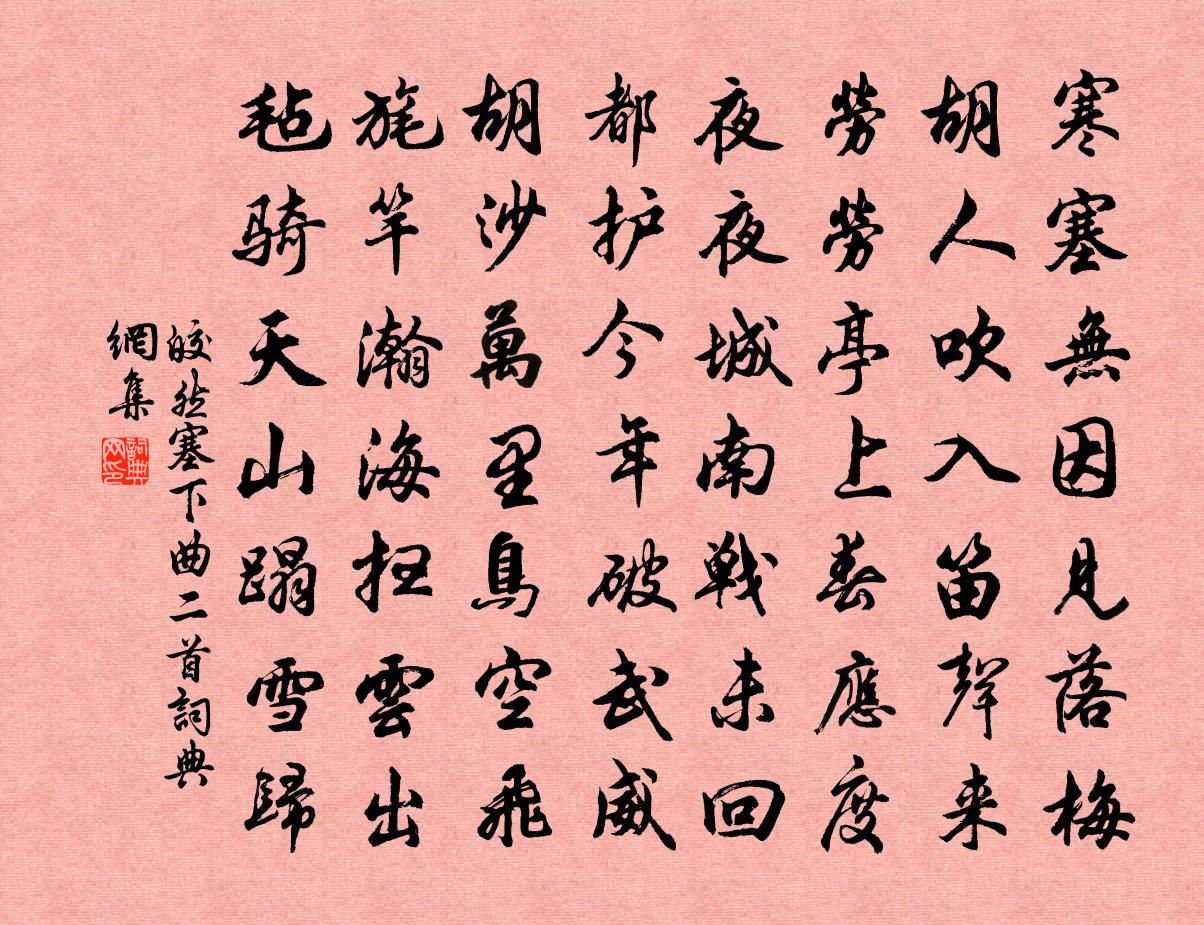 寒塞無因見落梅
胡人吹入笛聲来
勞勞亭上春應度
夜夜城南戰未回
都护今年破武威
胡沙萬里鳥空飛
旄竿瀚海掃雲出
毡骑天山蹋雪歸
皎然塞下曲二首詞典
網集
詞典網印